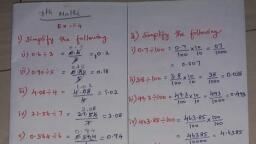 8th Maths
Ex - 1.4
1) Simplify the following
i) 0.6 ÷ 3 = 0.6/3 = 0.2
ii) 0.90 ÷ 5 = 0.90/5 = 0.18
iii) 4.08 ÷ 4 = 4.08/4 = 1.02
iv) 21.56 ÷ 7 = 21.56/7 = 3.08
= 0.94
2) Simplify the following
i) 0.7 ÷ 100 = 0.7/100 × 10/10 = 07/1000
= 0.007
ii) 3.8 ÷ 100 = 3.8/100 × 10/10 = 38/1000 = 0.038
iii) 49.3 ÷ 100 = 49.3/100 × 10/10 = 493/1000 = 0.493
iv) 463.85 ÷ 100 = 463.85/100 × 100/100
= 46385/10000 = 4.6385